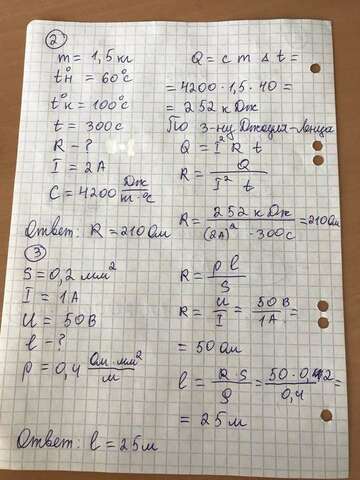 ②
m = 1,5 кг
tн = 60°С
tк = 100°С
t = 300 с
R - ?
I = 2А
С = 4200 Дж/кг·°С
Q = c m Δ t =
= 4200 · 1,5 · 40 =
= 252 кДж
По з-ну Джоуля-Ленца
Q = I² R t
R = Q/I² t
R = 252 кДж/(2А)² · 300с = 210 Ом
Ответ: R = 210 Ом
③
S = 0,2 мм²
I = 1А
U = 50В
l - ?
ρ = 0,4 Ом·мм²/м
R = ρl/S
R = U/I = 50В/1А =
= 50 Ом
l = RS/ρ = 50·0,2/0,4 =
= 25м
Ответ: l = 25м